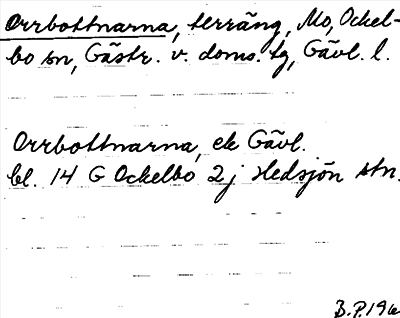 Orrbottnarna, terräng, Mo, Ockel-
bo sn, Gästr. v. doms. tg, Gävl. l.
Orrbottnarna, ek Gävl.
bl. 14 G Ockelbo 2 j Hedsjön stn.
B.P. 196